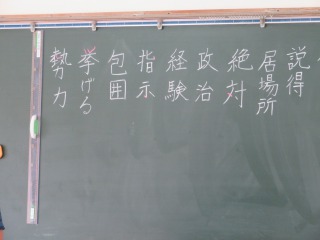 説得
居場所
絶対
政治
経験
指示
包囲
挙げる
勢力